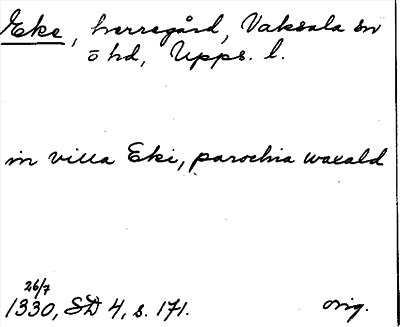 Eke, herregård, Vaksala sn
ö hd, Upps. l.
in villa Eki, parochia waxald
26/7
1330, SD 4, s. 171. orig.